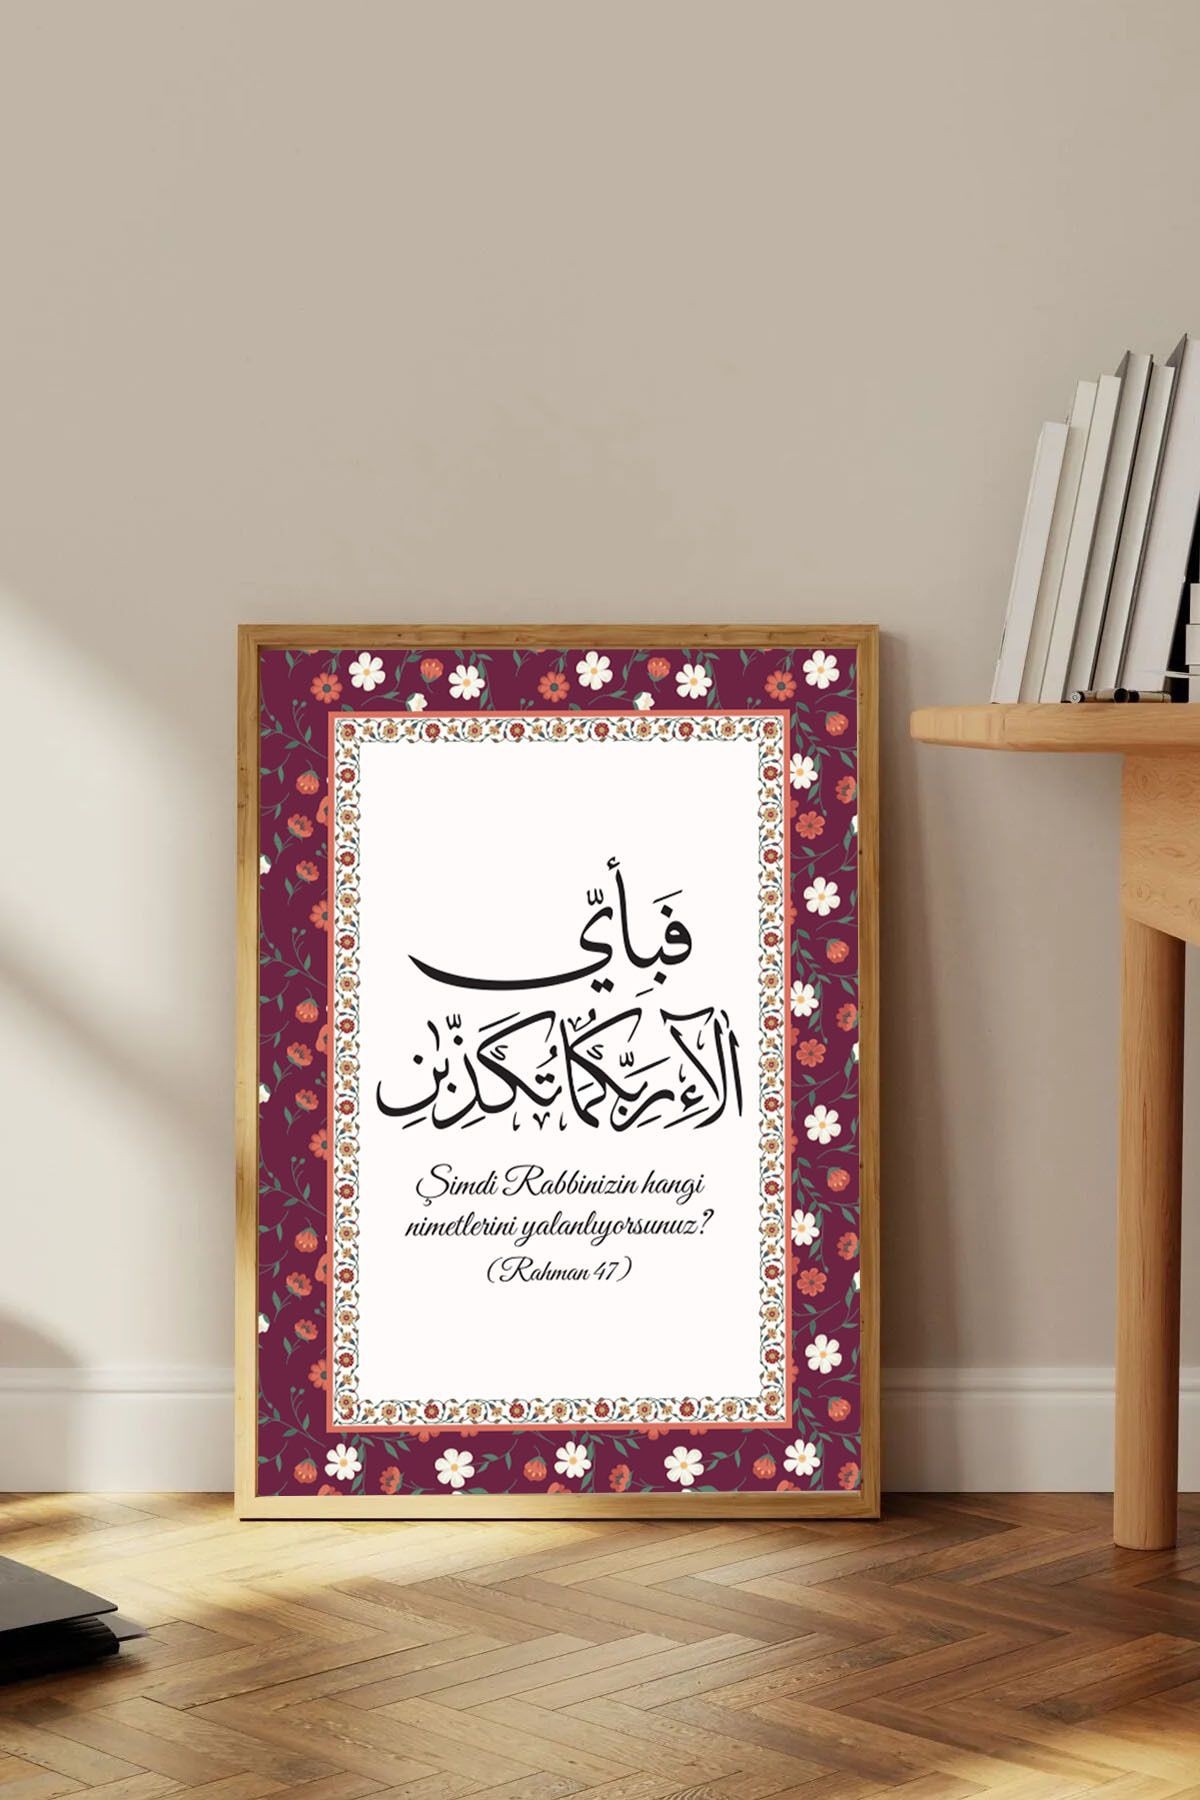 فَبِأَيِّ
اٰلَآءِ رَبِّكُمَا تُكَذِّبٰنِ
Şimdi Rabbinizin hangi
nimetlerini yalanlıyorsunuz?
(Rahman 47)